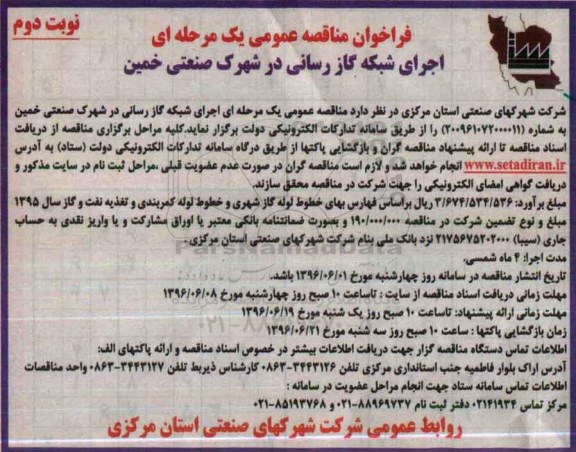 نوبت دوم
فراخوان مناقصه عمومی یک مرحله ای
اجرای شبکه گاز رسانی در شهرک صنعتی خمین
شرکت شهرکهای صنعتی استان مرکزی در نظر دارد مناقصه عمومی یک مرحله ای اجرای شبکه گاز رسانی در شهرک صنعتی خمین
به شماره (۲۰۰۹۶۱۰۷۲۰۰۰۰۱۱) را از طریق سامانه تدارکات الکترونیکی دولت برگزار نماید.کلیه مراحل برگزاری مناقصه از دریافت
اسناد مناقصه تا ارائه پیشنهاد مناقصه گران و بازگشایی پاکتها از طریق درگاه سامانه تدارکات الکترونیکی دولت (ستاد) به آدرس
www.setadiran.ir انجام خواهد شد و لازم است مناقصه گران در صورت عدم عضویت قبلی ،مراحل ثبت نام در سایت مذکور و
دریافت گواهی امضای الکترونیکی را جهت شرکت در مناقصه محقق سازند.
مبلغ برآورد: ۳/۶۷۴/۵۳۴/۵۳۶ ریال براساس فهارس بهای خطوط لوله گاز شهری و خطوط لوله کمربندی و تغذیه نفت و گاز سال ۱۳۹۵
مبلغ و نوع تضمین شرکت در مناقصه ۱۹۰/۰۰۰/۰۰۰ و بصورت ضمانتنامه بانکی معتبر یا اوراق مشارکت و یا واریز نقدی به حساب
جاری (سیبا) ۲۱۷۵۶۷۵۲۰۲۰۰۰ نزد بانک ملی بنام شرکت شهرکهای صنعتی استان مرکزی .
مدت اجرا: ۴ ماه شمسی.
تاریخ انتشار مناقصه در سامانه روز چهارشنبه مورخ ۱۳۹۶/۰۶/۰۱ باشد.
مهلت زمانی دریافت اسناد مناقصه از سایت : تاساعت ۱۰ صبح روز چهارشنبه مورخ ۱۳۹۶/۰۶/۰۸
مهلت زمانی ارائه پیشنهاد: تاساعت ۱۰ صبح روز یک شنبه مورخ ۱۳۹۶/۰۶/۱۹
زمان بازگشایی پاکتها : ساعت ۱۰ صبح روز سه شنبه مورخ ۱۳۹۶/۰۶/۲۱
اطلاعات تماس دستگاه مناقصه گزار جهت دریافت اطلاعات بیشتر در خصوص اسناد مناقصه و ارائه پاکتهای الف:
آدرس اراک بلوار فاطمیه جنب استانداری مرکزی تلفن ۳۴۴۳۱۲۶-۰۸۶۳ کارشناس ذیربط تلفن ۳۴۴۳۱۲۷-۰۸۶۳ واحد مناقصات
اطلاعات تماس سامانه ستاد جهت انجام مراحل عضویت در سامانه :
مرکز تماس ۰۲۱۴۱۹۳۴ دفتر ثبت نام ۸۸۹۶۹۷۳۷-۰۲۱ و ۸۵۱۹۳۷۶۸-۰۲۱
روابط عمومی شرکت شهرکهای صنعتی استان مرکزی